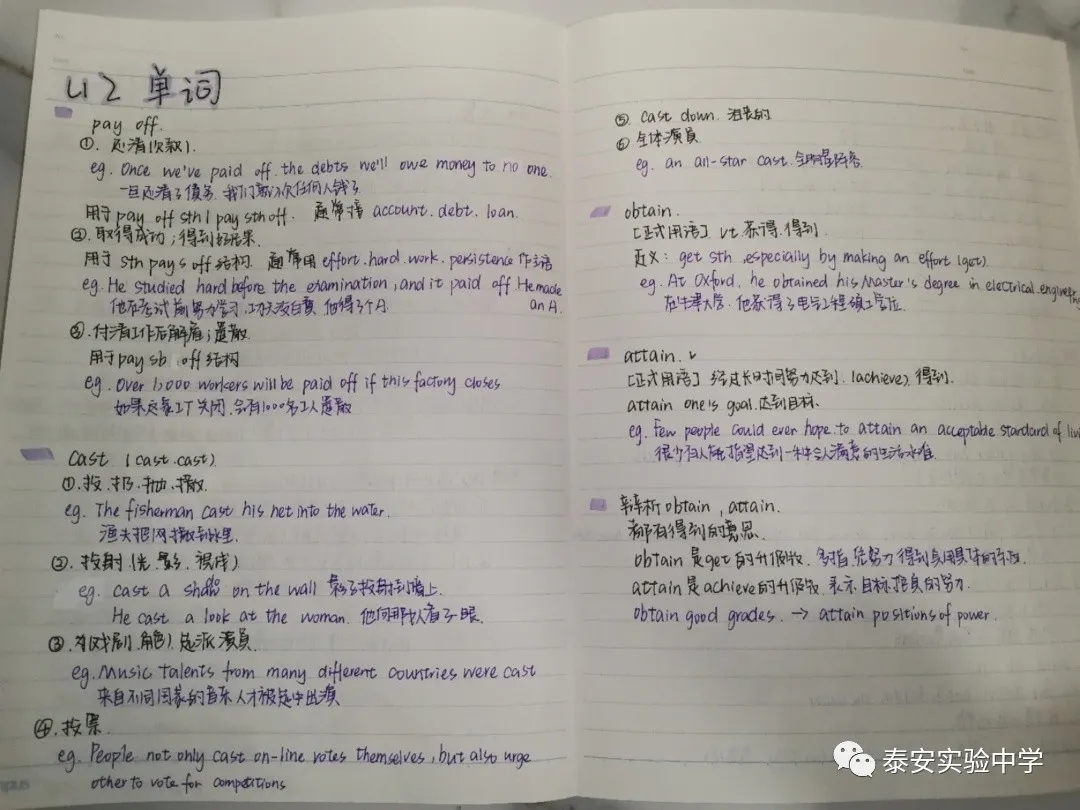 U2 单词
pay off.
①. 还清(欠款).
eg. Once we've paid off the debts we'll owe money to no one.
一旦还清了债务.我们就不欠任何人钱了
用于pay off sth / pay sth off. 通常接 account. debt. loan.
②. 取得成功;得到好结果.
用于 sth pays off 结构. 通常用effort. hard. work. persistence 作主语
eg. He studied hard before the examination, and it paid off. He made
an A.
他在考试前努力学习.工夫没白费.他得了个A.
③. 付清工作后解雇;遣散.
用于pay sb. off 结构
eg. Over 1,000 workers will be paid off if this factory closes
如果这家工厂关闭.会有1000名工人遣散
Cast (cast.cast)
①.投.扔.抛.撒.
eg. The fisherman cast his net into the water.
渔夫把网撒到水里.
②. 投射(光.影.视线)
eg. cast a on the wall 影子投射到墙上.
He cast a look at the woman. 他向那女人看了一眼.
③.为(戏剧.角色).选派演员.
eg. Music talents from many different countries were cast
来自不同国家的音乐人才被选中出演
④.投票.
eg. People not only cast on-line votes themselves, but also urge
other to vote for competitions
⑤. cast down. 沮丧的
⑥ 全体演员
eg. an all-star cast. 全明星阵容
obtain.
[正式用语]. vt. 获得.得到.
定义: get sth .especially by making an effort (get).
eg. At Oxford. he obtained his Master's degree in electrical
在牛津大学.他获得了电气工程硕士学位.
attain. v
[正式用语] 经过长时间努力达到. (achieve) 得到.
attain one's goal.达到目标.
eg. Few people could ever hope to attain an acceptable standard of
很少有人能指望达到一种令人满意的生活水准.
辩析obtain, attain.
都有得到的意思.
obtain 是get的升级版. 多指.凭努力得到的东西.
attain是achieve的升级版. 表示目标.的努力.
obtain good grades. → attain positions of power.
泰安实验中学